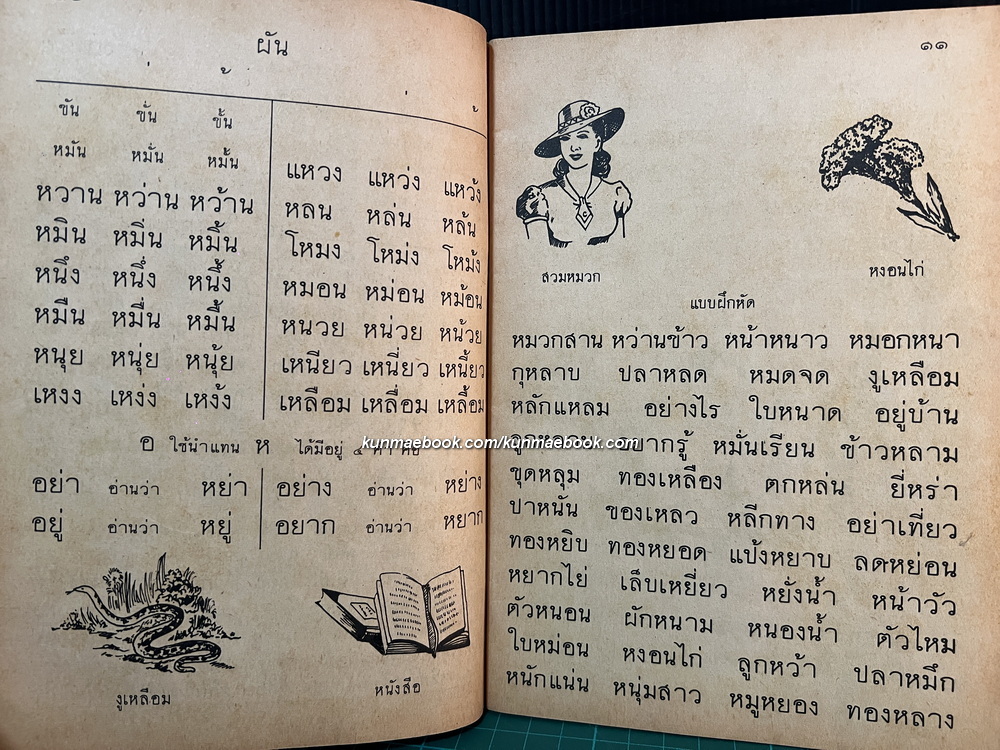 ผัน
่ ้ ่ ้
ขัน ขั่น ขั้น
หมัน หมั่น หมั้น
หวาน หว่าน หว้าน
หมิน หมิ่น หมิ้น
หนึง หนึ่ง หนึ้ง
หมืน หมื่น หมื้น
หนุย หนุ่ย หนุ้ย
เหงง เหง่ง เหง้ง
แหวง แหว่ง แหว้ง
หลน หล่น หล้น
โหมง โหม่ง โหม้ง
หมอน หม่อน หม้อน
หนวย หน่วย หน้วย
เหนียว เหนี่ยว เหนี้ยว
เหลือม เหลื่อม เหลื้อม
อ ใช้นำแทน ห ได้มีอยู่ ๔ คำ คือ
อย่า อ่านว่า หย่า อย่าง อ่านว่า หย่าง
อยู่ อ่านว่า หยู่ อยาก อ่านว่า หยาก
งูเหลือม หนังสือ
๑๑
สวมหมวก หงอนไก่
แบบฝึกหัด
หมวกสาน หว่านข้าว หน้าหนาว หมอกหนา
กุหลาบ ปลาหลด หมดจด งูเหลือม
หลักแหลม อย่างไร ใบหนาด อยู่บ้าน
อยากรู้ หมั่นเรียน ข้าวหลาม
ขุดหลุม ทองเหลือง ตกหล่น ยี่หร่า
ปาหนัน ของเหลว หลีกทาง อย่าเที่ยว
ทองหยิบ ทองหยอด แป้งหยาบ ลดหย่อน
หยากไย่ เล็บเหยี่ยว หยั่งน้ำ หน้าวัว
ตัวหนอน ผักหนาม หนองน้ำ ตัวไหม
ใบหม่อน หงอนไก่ ลูกหว้า ปลาหมึก
หนักแน่น หนุ่มสาว หมูหยอง ทองหลาง
kunmaebook.com/kunmaebook.com